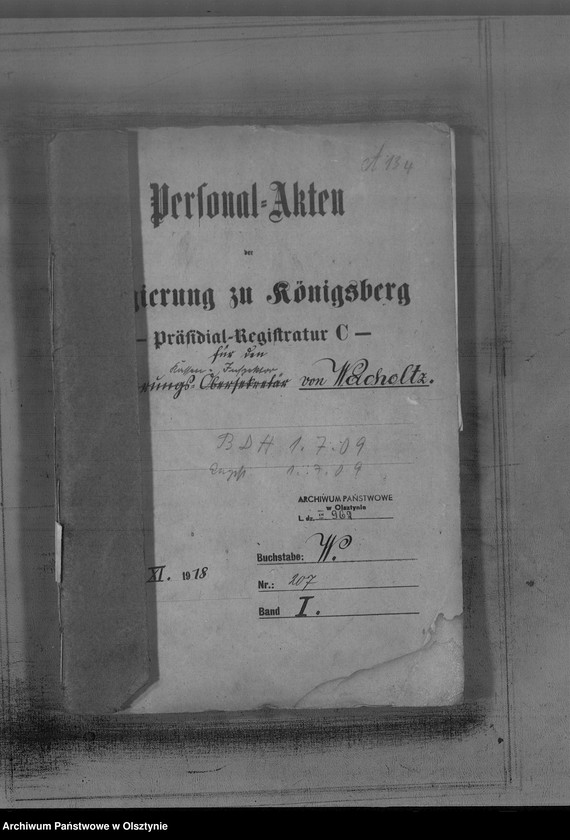 A 134
Personal-Akten
der
gierung zu Königsberg
— Präsidial-Registratur C —
für den
Kassen-Inspektor
rungs-Obersekretär von Wacholtz.
BDA 1.7.09
1.7.09
ARCHIWUM PAŃSTWOWE
w Olsztynie
L. dz. II 969
Buchstabe: W.
XI. 1918
Nr.: 207
Band I.
Archiwum Państwowe w Olsztynie